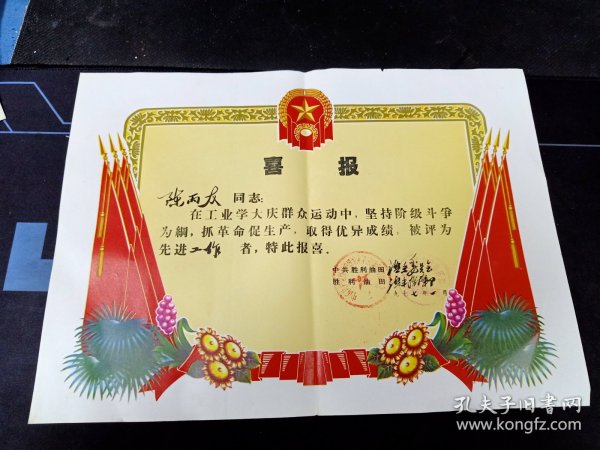 喜报
张丙友 同志：
在工业学大庆群众运动中，坚持阶级斗争
为纲，抓革命促生产，取得优异成绩，被评为
先进工作者，特此报喜。
中共胜利油田
胜利油田
一九七七年一月
孔夫子旧书网
www.kongfz.com